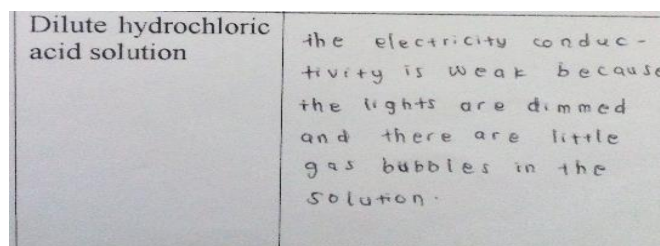 Dilute hydrochloric
acid solution
the electricity conduc-
tivity is weak because
the lights are dimmed
and there are little
gas bubbles in the
solution.